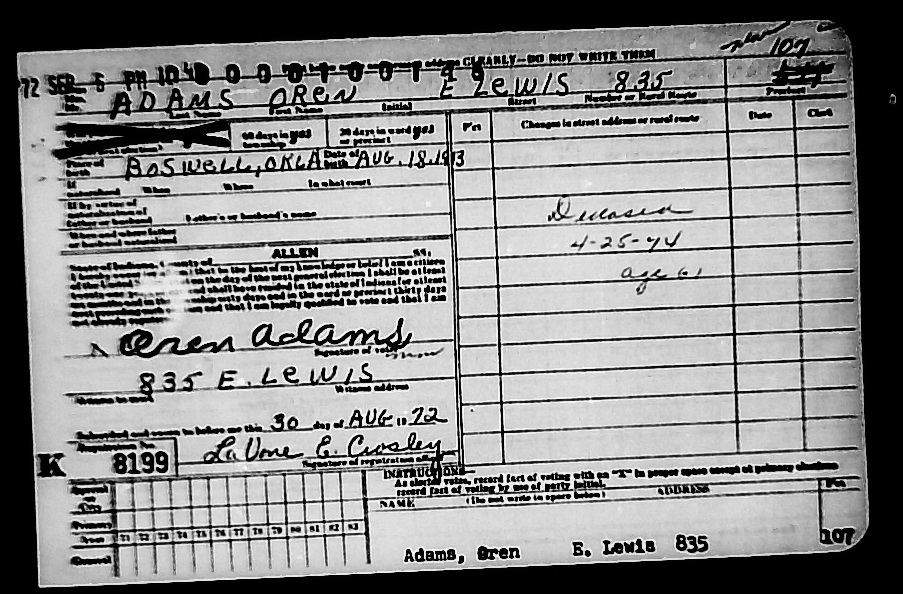 new 107
'72 SEP 5 PM 10 address CLEARLY—DO NOT WRITE THEM
ADAMS OREN E LEWIS 835
Last Name First Name Initial Street Number or Rural Route Precinct
60 days in township yes 30 days in ward or precinct yes Pct Changes in street address or rural route Date Clerk
Place of birth BOSWELL, OKLA Date of birth AUG. 18, 1913
If naturalized When Where In what court
If by virtue of naturalization of father or husband Father's or husband's name
When and where father or husband naturalized
Deceased
4-25-74
age 61
State of Indiana, County of ALLEN SS:
I hereby swear that to the best of my knowledge or belief I am a citizen
of the United on the day of the next general election I shall be at least
years and shall have resided in the state of Indiana for at least
months and in the township sixty days and in the ward or precinct thirty days
next preceding and that I am legally qualified to vote and that I am
X Oren Adams
Signature of voter
835 E. LEWIS
Witness to mark Witness address
Subscribed and sworn to before me this 30 day of AUG 1972
Registration No.
K 8199 LaVone E. Crosley
Signature of registration officer
INSTRUCTIONS
As elector votes, record fact of voting with an "X" in proper space except at primary elections
record fact of voting by use of party initial.
(Do not write in space below)
NAME ADDRESS Pct
Primary
Years 71 72 73 74 75 76 77 78 79 80 81 82 83
General
Adams, Oren E. Lewis 835 107